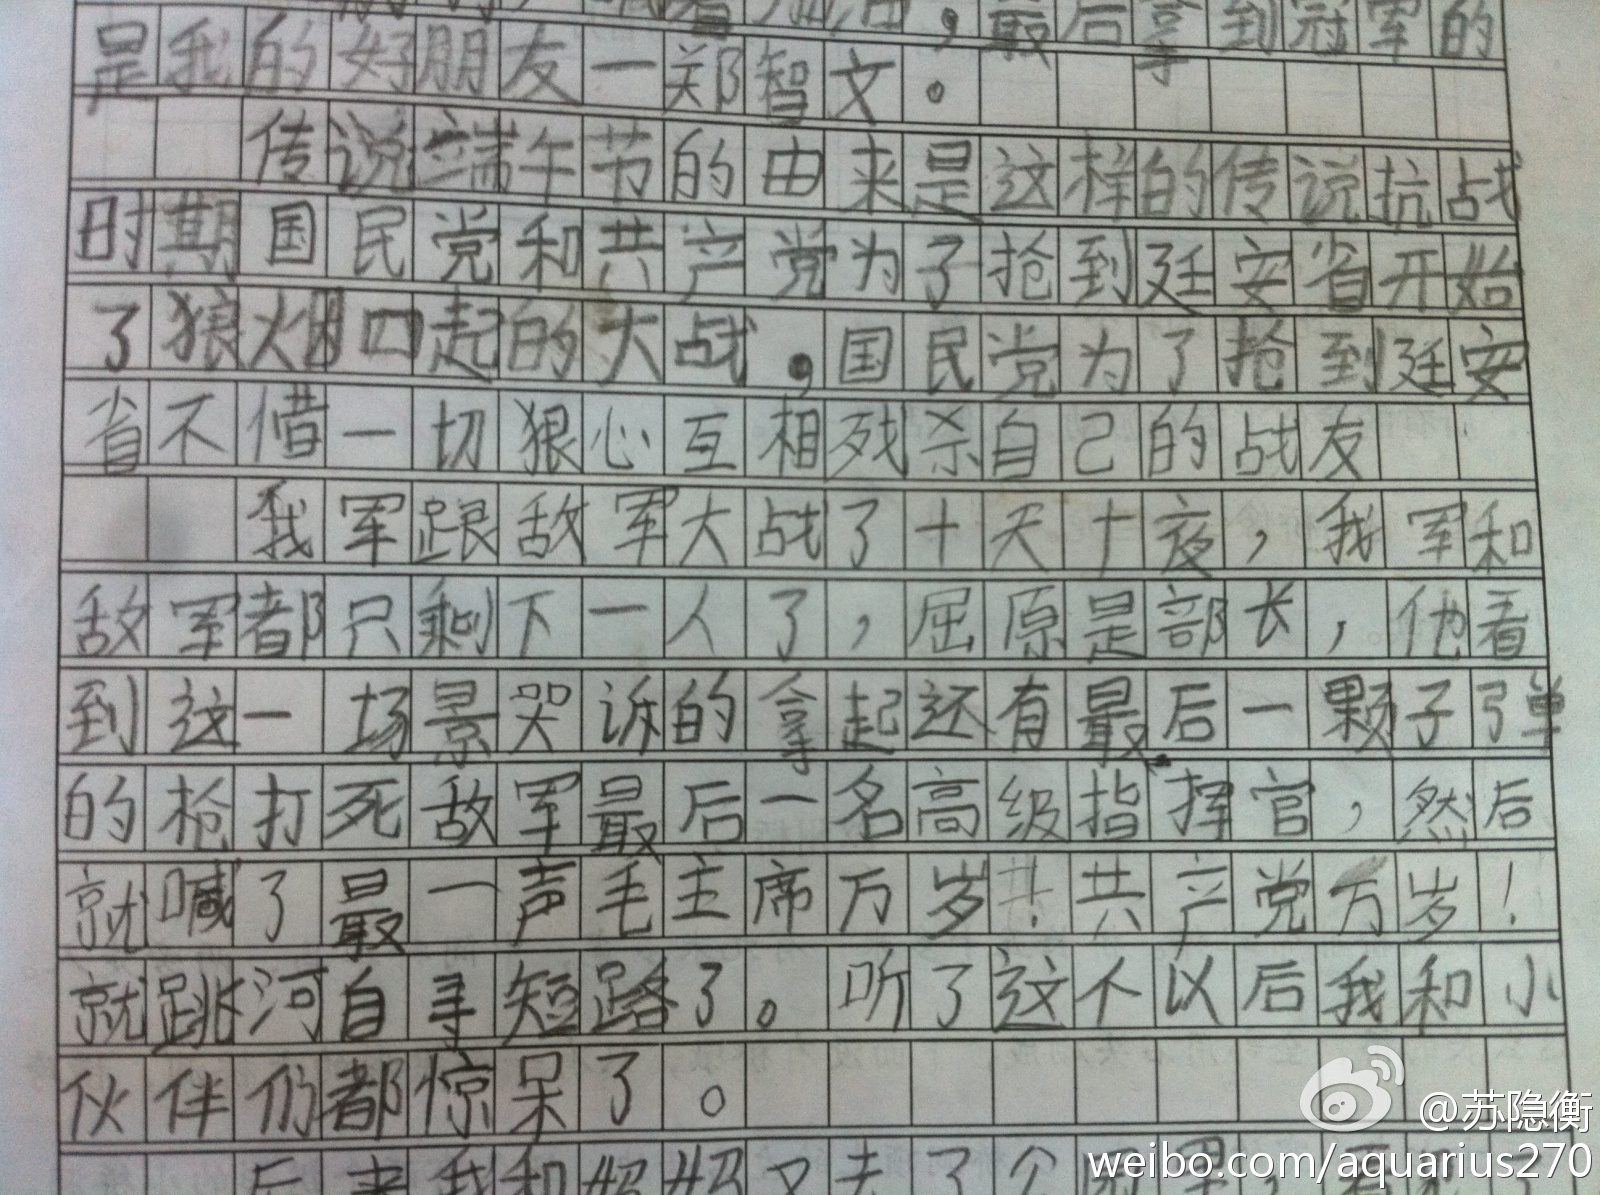 ，最后拿到冠军的
是我的好朋友一郑智文。
传说端午节的由来是这样的传说抗战
时期国民党和共产党为了抢到廷安省开始
了狼烟四起的大战，国民党为了抢到廷安
省不惜一切狠心互相残杀自己的战友
我军跟敌军大战了十天十夜，我军和
敌军都只剩下一人了，屈原是部长，他看
到这一场景哭诉的拿起还有最后一颗子弹
的枪打死敌军最后一名高级指挥官，然后
就喊了最一声毛主席万岁！共产党万岁！
就跳河自寻短路了。听了这个以后我和小
伙伴们都惊呆了。
后来我和妈妈又去了
@苏隐衡
weibo.com/aquarius270